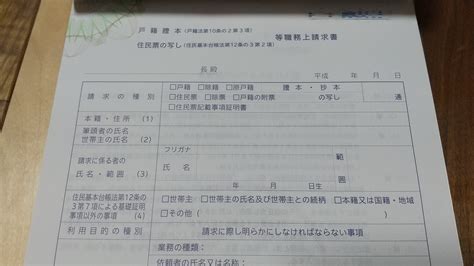 戸籍謄本（戸籍法第10条の2第3項）
等職務上請求書
住民票の写し（住民基本台帳法第12条の3第2項）
長殿　平成　年　月　日
請求の種別　□戸籍　□除籍　□原戸籍　謄本・抄本
□住民票　□除票　□戸籍の附票　の写し　通
□住民票記載事項証明書
本籍・住所　(1)
筆頭者の氏名
世帯主の氏名　(2)
請求に係る者の
氏名・範囲　(3)
フリガナ
氏名
範囲
年　月　日生
住民基本台帳法第12条の
3第7項による基礎証明
事項以外の事項　(4)
□世帯主　□世帯主の氏名及び世帯主との続柄　□本籍又は国籍・地域
□その他（　）
利用目的の種別　請求に際し明らかにしなければならない事項
業務の種類：
依頼者の氏名又は名称：